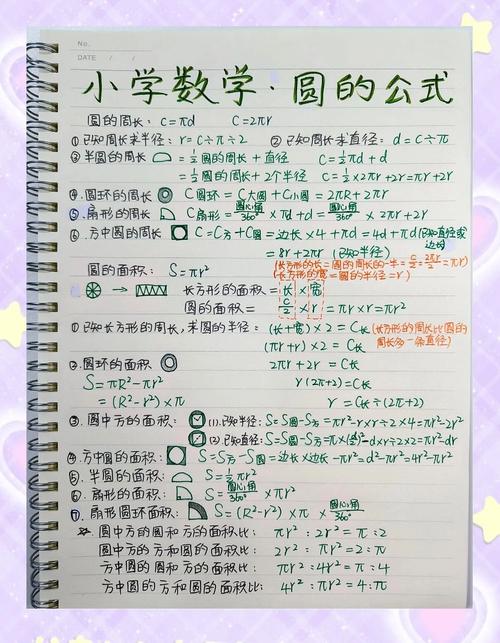 No.
DATE / /
小学数学·圆的公式
圆的周长：C=πd C=2πr
①已知周长求半径：r=C÷π÷2 ②已知周长求直径：d=C÷π
③半圆的周长 =½圆的周长+直径 C=½πd+d
=½圆的周长+2个半径 C=½×2πr+2r=πr+2r
④圆环的周长 C圆环=C大圆+C小圆=2πR+2πr
⑤扇形的周长 C扇形=圆心角/360°×πd+d=圆心角/360°×2πr+2r
⑥方中圆的周长 C=C方+C圆=边长×4+πd=4d+πd(已知直径或边长)
=8r+2πr (已知半径)
圆的面积：S=πr²
(长方形的长=圆的周长的一半=C/2=2πr/2=πr)
(长方形的宽=圆的半径=r)
长方形的面积=长×宽
圆的面积=C/2×r=πr×r=πr²
①已知长方形的周长，求圆的半径：(长+宽)×2=C长(长方形的周长比圆的周长多一条直径)
(πr+r)×2=C长
②圆环的面积 2πr+2r=C长
S=πR²-πr² r(2π+2)=C长
=(R²-r²)×π r=C长÷(2π+2)
③圆中方的面积： (1).已知半径：S=S圆-S方=πr²-r×r÷2×4=πr²-2r²
(2).已知直径：S=S圆-S方=π×(d/2)²-d×r÷2×2=πr²-dr
④方中圆的面积： S=S方-S圆=边长×边长-πr²=d²-πr²=4r²-πr²
⑤.半圆的面积： S=½πr²
⑥.扇形的面积： S=圆心角/360°×πr²
⑦.扇形圆环面积： S=(R²-r²)×π×圆心角/360°
※.圆中方的圆和方的面积比： πr²:2r²=π:2
圆中方的方和圆的面积比： 2r²:πr²=2:π
方中圆的圆和方的面积比： πr²:4r²=π:4
方中圆的方和圆的面积比： 4r²:πr²=4:π